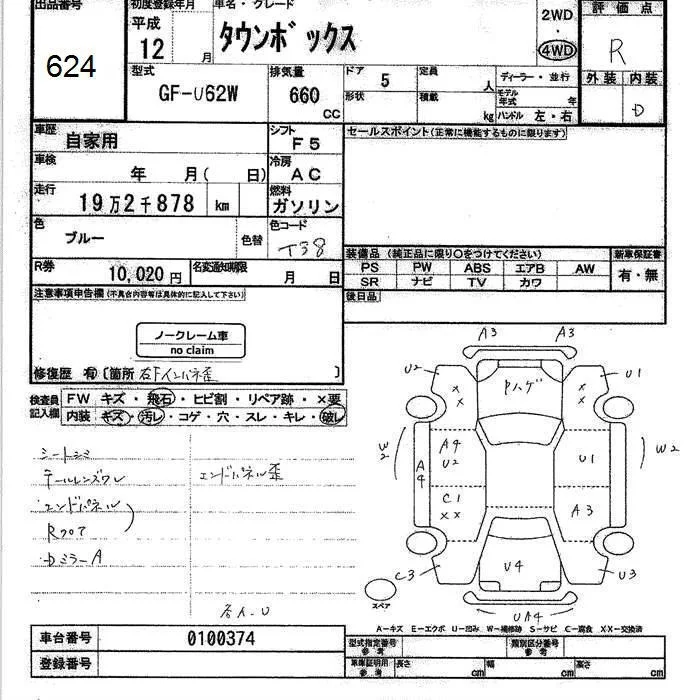 出品番号
624
初度登録年月
平成
12 月
車名・グレード
タウンボックス
2WD
・
4WD
評価点
R
外装 内装
D
型式
GF-U62W
排気量
660
CC
ドア
5
形状
定員
人
積載
kg
ディーラー・並行
モデル年式 年
ハンドル 左・右
車歴
自家用
シフト
F5
車検
年 月( 日)
冷房
AC
走行
19万2千878 km
燃料
ガソリン
色
ブルー
色替
色コード
T38
R券
10,020円
名変通知期限
月 日
セールスポイント(正常に機能するものに限ります)
装備品 (純正品に限り○をつけてください)
PS PW ABS エアB AW
SR ナビ TV カワ
新車保証書
有・無
後日品
注意事項申告欄(不具合内容等は具体的に記入して下さい)
ノークレーム車
no claim
修復歴 有〔箇所 右Fインパネ歪 〕
検査員
記入欄
FW キズ・飛石・ヒビ割・リペア跡・×要
内装 キズ・汚レ・コゲ・穴・スレ・キレ・破レ
シートシミ
テールレンズワレ
エンドパネル
Rフロア
DミラーA
エンドパネル歪
右人-U
A3 A3
U2 U1
X X
X X
Pハゲ
W2
A4
A4
U2
U1
W2
C1
XX
A3
C3
U4
U3
スペア
UA4
A-キズ E-エクボ U-凹み W-補修跡 S-サビ C-腐食 XX-交換済
車台番号
0100374
登録番号
型式指定番号
参考
類別区分番号
参考
車庫証明用
参考
長さ cm
幅 cm
高さ cm